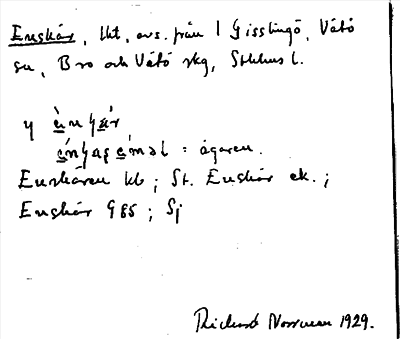 Enskär, lht, avs. från 1 Gisslingö, Vätö
sn, Bro och Vätö skg, Sthlms l.
y
: ägaren.
Enskären kb ; St. Enskär ek. ;
Enskär G85 ; Sj
Richard Norrman 1929.